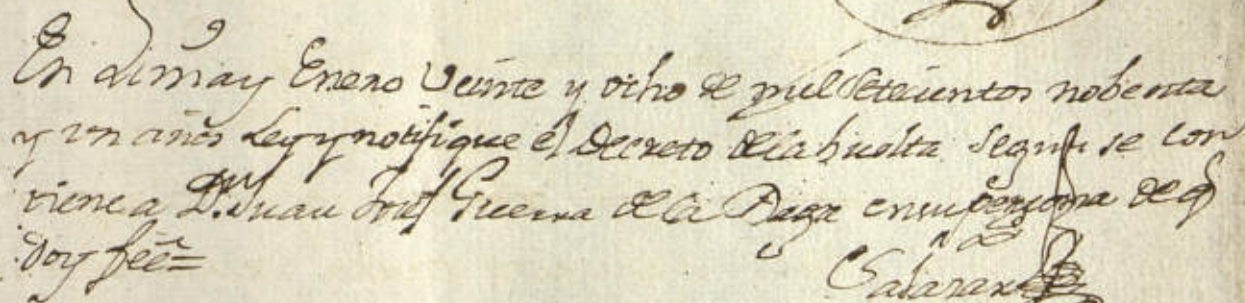 En Lima y Enero Veinte y ocho de mil Setecientos nobenta
y un años Ley y notifique el Decreto de la buelta segun se con
tiene a Dn. Juan Josef Guerra de la Daga en su persona de q
doy feé=